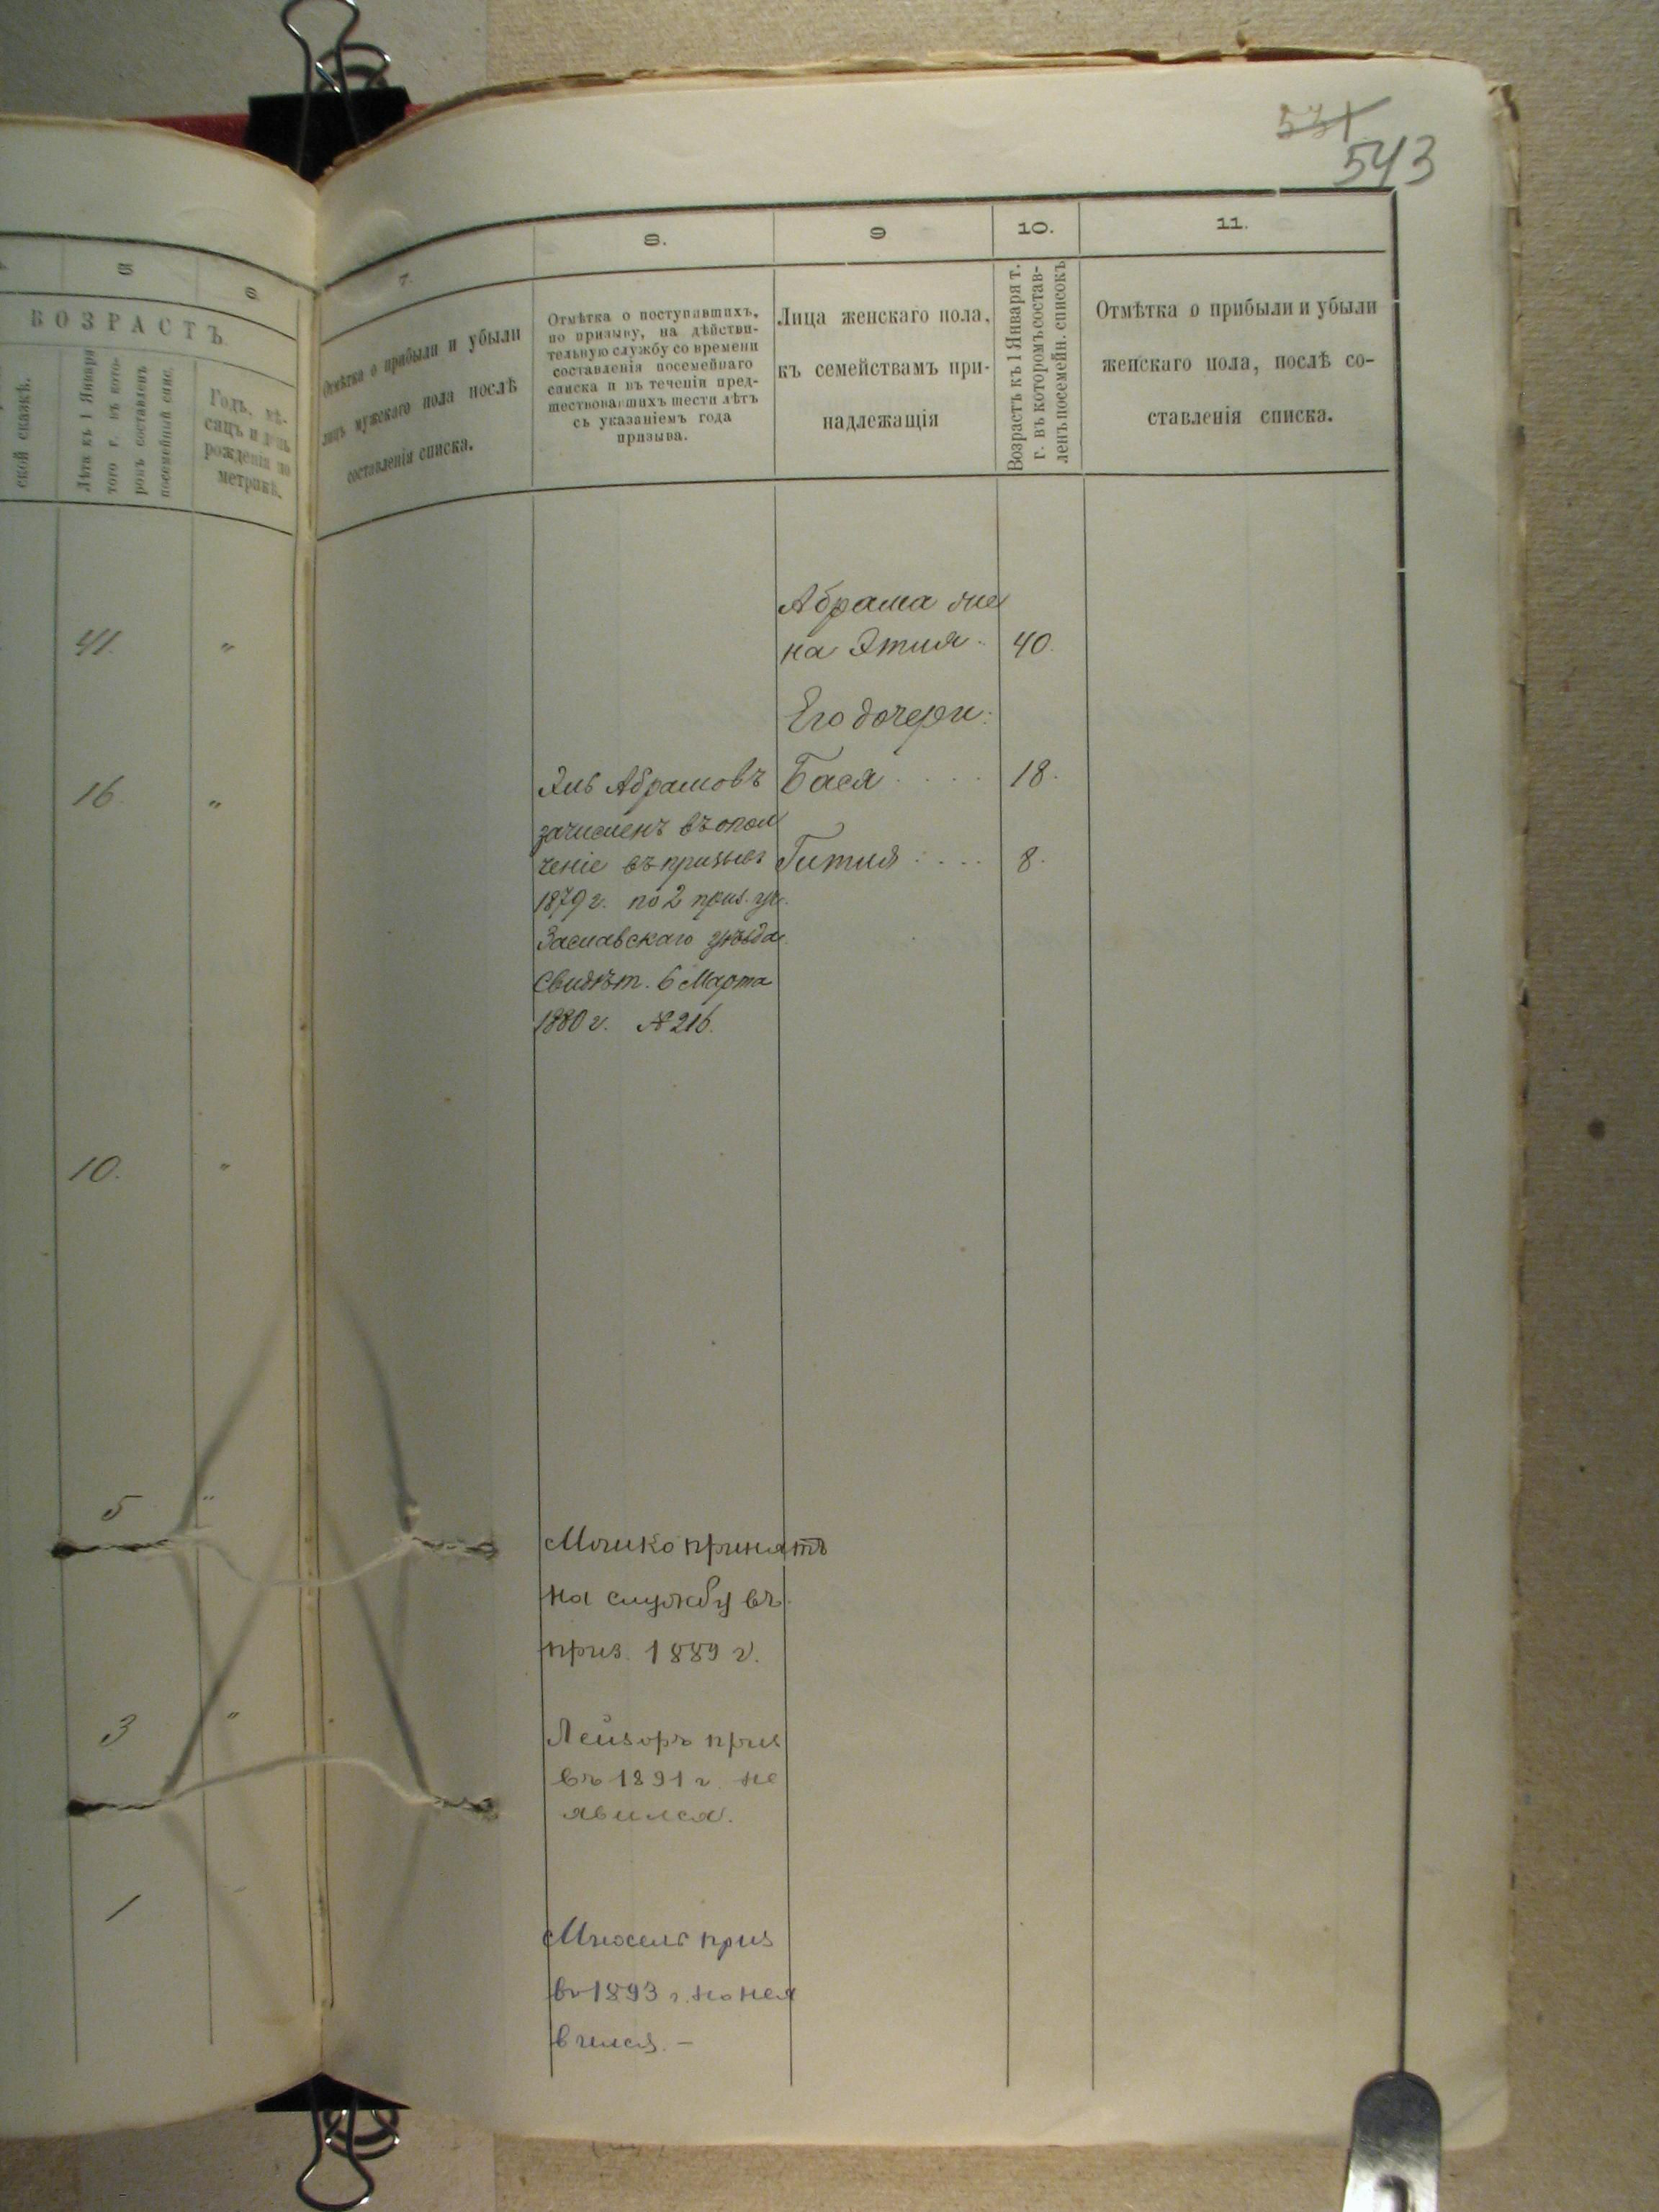 531
543
5
6
ВОЗРАСТЪ
ской сказкѣ.
Лѣта къ 1 Января
того г. въ кото-
ромъ составленъ
посемейный спис.
Годъ, мѣ-
сяцъ и день
рожденія по
метрикѣ.
41. "
16. "
10. "
5 "
3 "
1
7.
8.
9
10.
11.
Отмѣтка о прибыли и убыли
лицъ мужскаго пола послѣ
составленія списка.
Отмѣтка о поступившихъ,
по призыву, на дѣйстви-
тельную службу со времени
составленія посемейнаго
списка и въ теченіи пред-
шествовавшихъ шести лѣтъ
съ указаніемъ года
призыва.
Лица женскаго пола,
къ семействамъ при-
надлежащія
Возрастъ къ 1 Января т.
г. въ которомъ состав-
ленъ посемейн. списокъ
Отмѣтка о прибыли и убыли
женскаго пола, послѣ со-
ставленія списка.
Абрама же
на Этия. 40.
Его дочери:
Бася . . . . 18.
Гития . . . . 8.
Абрамовъ
зачисленъ въ опол
ченіе въ призывъ
1879 г. по 2 приз. уч.
Заславскаго уѣзда.
Свидѣт. 6 Марта
1880 г. № 216.
Мошко принятъ
на службу въ
приз. 1889 г.
Лейзоръ приз
въ 1891 г. не
явился.
приз
въ 1893 г. но нея
вился. –